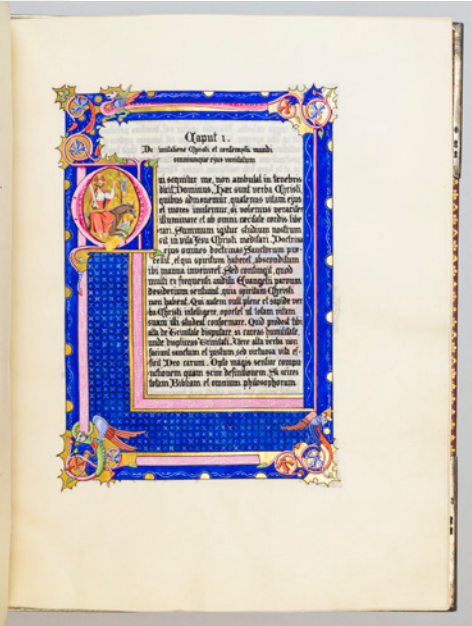 Caput 1.
De imitatione Christi et contemptu mundi
omniumque ejus vanitatum
Qui sequitur me, non ambulat in tenebris
dicit Dominus. Hæc sunt verba Christi,
quibus admonemur, quatenus vitam ejus
et mores imitemur, si volumus veraciter
illuminari et ab omni cæcitate cordis libe
rari. Summum igitur studium nostrum
sit in vita Jesu Christi meditari. Doctrina
ejus omnes doctrinas Sanctorum præ-
cellit, et qui spiritum haberet, absconditum
ibi manna inveniret. Sed contingit, quod
multi ex frequenti auditu Evangelii parvum
desiderium sentiunt, quia spiritum Christi
non habent. Qui autem vult plene et sapide ver
ba Christi intelligere, oportet ut totam vitam
suam illi studeat conformare. Quid prodest tibi
alta de Trinitate disputare, si careas humilitate,
unde displiceas Trinitati. Vere alta verba non
faciunt sanctum et justum, sed virtuosa vita ef-
ficit Deo carum. Opto magis sentire compun-
ctionem quam scire definitionem. Si scires
totam Bibliam et omnium philosophorum